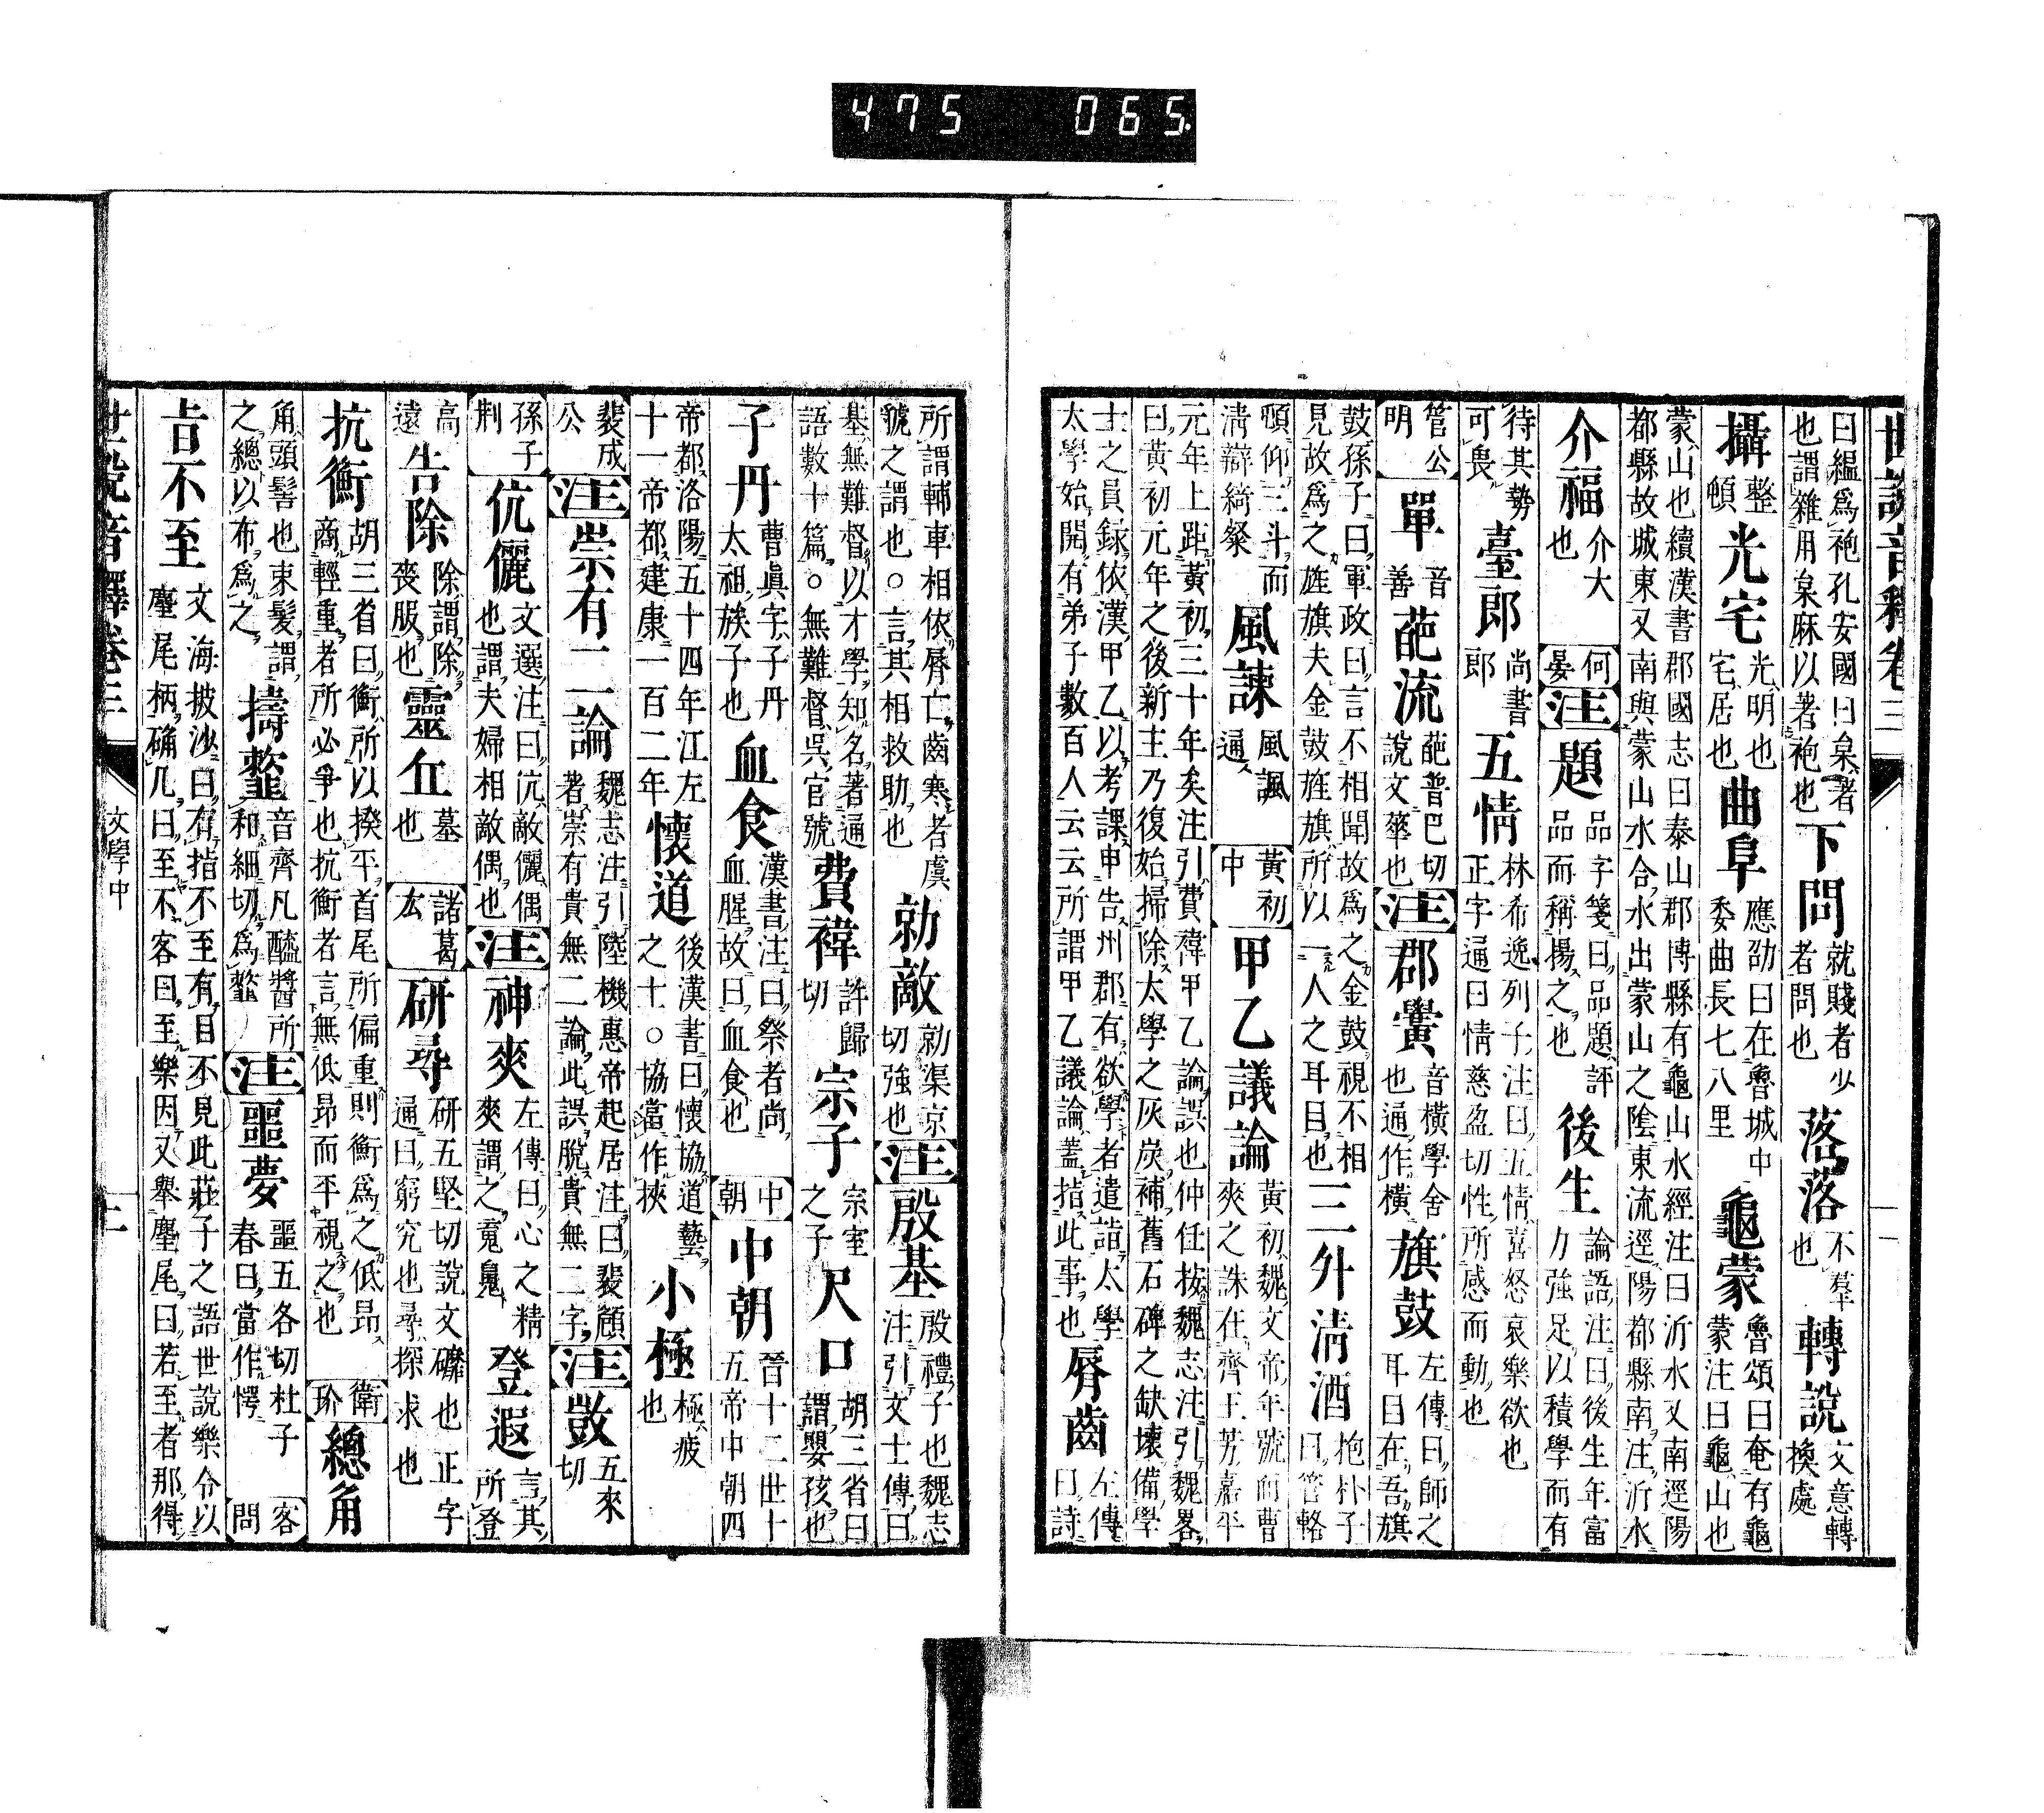 475 065
世說音釋卷三
曰縕爲袍孔安國曰枲著也謂雜用枲麻以著袍也 下問 就賤者少者問也 落落 不羣也 轉說 文意轉換處
攝 整頓 光宅 光明也宅居也 曲阜 應劭曰在魯城中委曲長七八里 龜蒙 魯頌曰奄有龜蒙注曰龜山也
蒙山也續漢書郡國志曰泰山郡博縣有龜山水經注曰沂水又南逕陽都縣故城東又南與蒙山水合水出蒙山之陰東流逕陽都縣南注沂水
介福 介大也 何晏 注 題 品字箋曰品題評品而稱揚之也 後生 論語注曰後生年富力強足以積學而有
待其勢可畏 臺郎 尚書郎 五情 林希逸列子注曰五情喜怒哀樂欲也正字通曰情慈盈切性所感而動也
管公明 單 音善 葩流 葩普巴切說文華也 注 郡黌 音橫學舍也通作橫 旗鼓 左傳曰師之耳目在吾旗
鼓孫子曰軍政曰言不相聞故爲之金鼓視不相見故爲之旌旗夫金鼓旌旗所以一人之耳目也 三外清酒 抱朴子曰管輅
頓仰三斗而淸辯綺粲 風諫 風諷通 黃初中 甲乙議論 黃初魏文帝年號而曹爽之誅在齊王芳嘉平
元年上距黃初三十年矣注引費褘甲乙論誤也仲任按魏志注引魏畧曰黃初元年之後新主乃復始掃除太學之灰炭補舊石碑之缺壞備學
士之員錄依漢甲乙以考課申告州郡有欲學者遣詣太學太學始開有弟子數百人云云所謂甲乙議論蓋指此事也 脣齒 左傳曰詩
所謂輔車相依脣亡齒寒者虞虢之謂也○言其相救助也 勍敵 勍渠京切強也 注 殷基 殷禮子也魏志注引文士傳曰
基無難督以才學知名著通語數十篇○無難督吳官號 費褘 許歸切 宗子 宗室之子 尺口 胡三省曰謂嬰孩也
子丹 曹眞字子丹太祖族子也 血食 漢書注曰祭者尚血腥故曰血食也 中朝 中朝 晉十二世十五帝中朝四
帝都洛陽五十四年江左十一帝都建康一百二年 懷道 後漢書曰懷協道藝之士○協當作挾 小極 極疲也
裴成公 注 崇有二論 魏志注引陸機惠帝起居注曰裴頠著崇有貴無二論此誤脫貴無二字 注 敱 五來切
孫子荆 伉儷 文選注曰伉敵儷偶也謂夫婦相敵偶也 注 神爽 左傳曰心之精爽謂之䰟䰟 登遐 言其所登
高遠 告除 除謂除喪服也 靈丘 墓也 諸葛厷 研尋 研五堅切說文礦也正字通曰窮究也尋探求也
抗衡 胡三省曰衡所以揆平首尾所偏重則衡爲之低昂商輕重者所必爭也抗衡者言無低昂而平視之也 衛玠 總角
角頭髻也束髮謂之總以布爲之 擣虀 音齊凡醯醬所和細切爲虀 注 噩夢 噩五各切杜子春曰當作愕 客問
旨不至 文海披沙曰有指不至有目不見此莊子之語世說樂令以麈尾柄确几曰至不客曰至樂因又舉麈尾曰若至者那得
世說音釋卷三
文學中